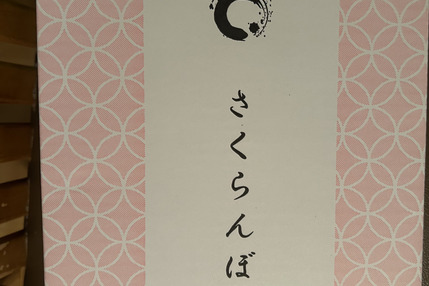 さくらんぼ